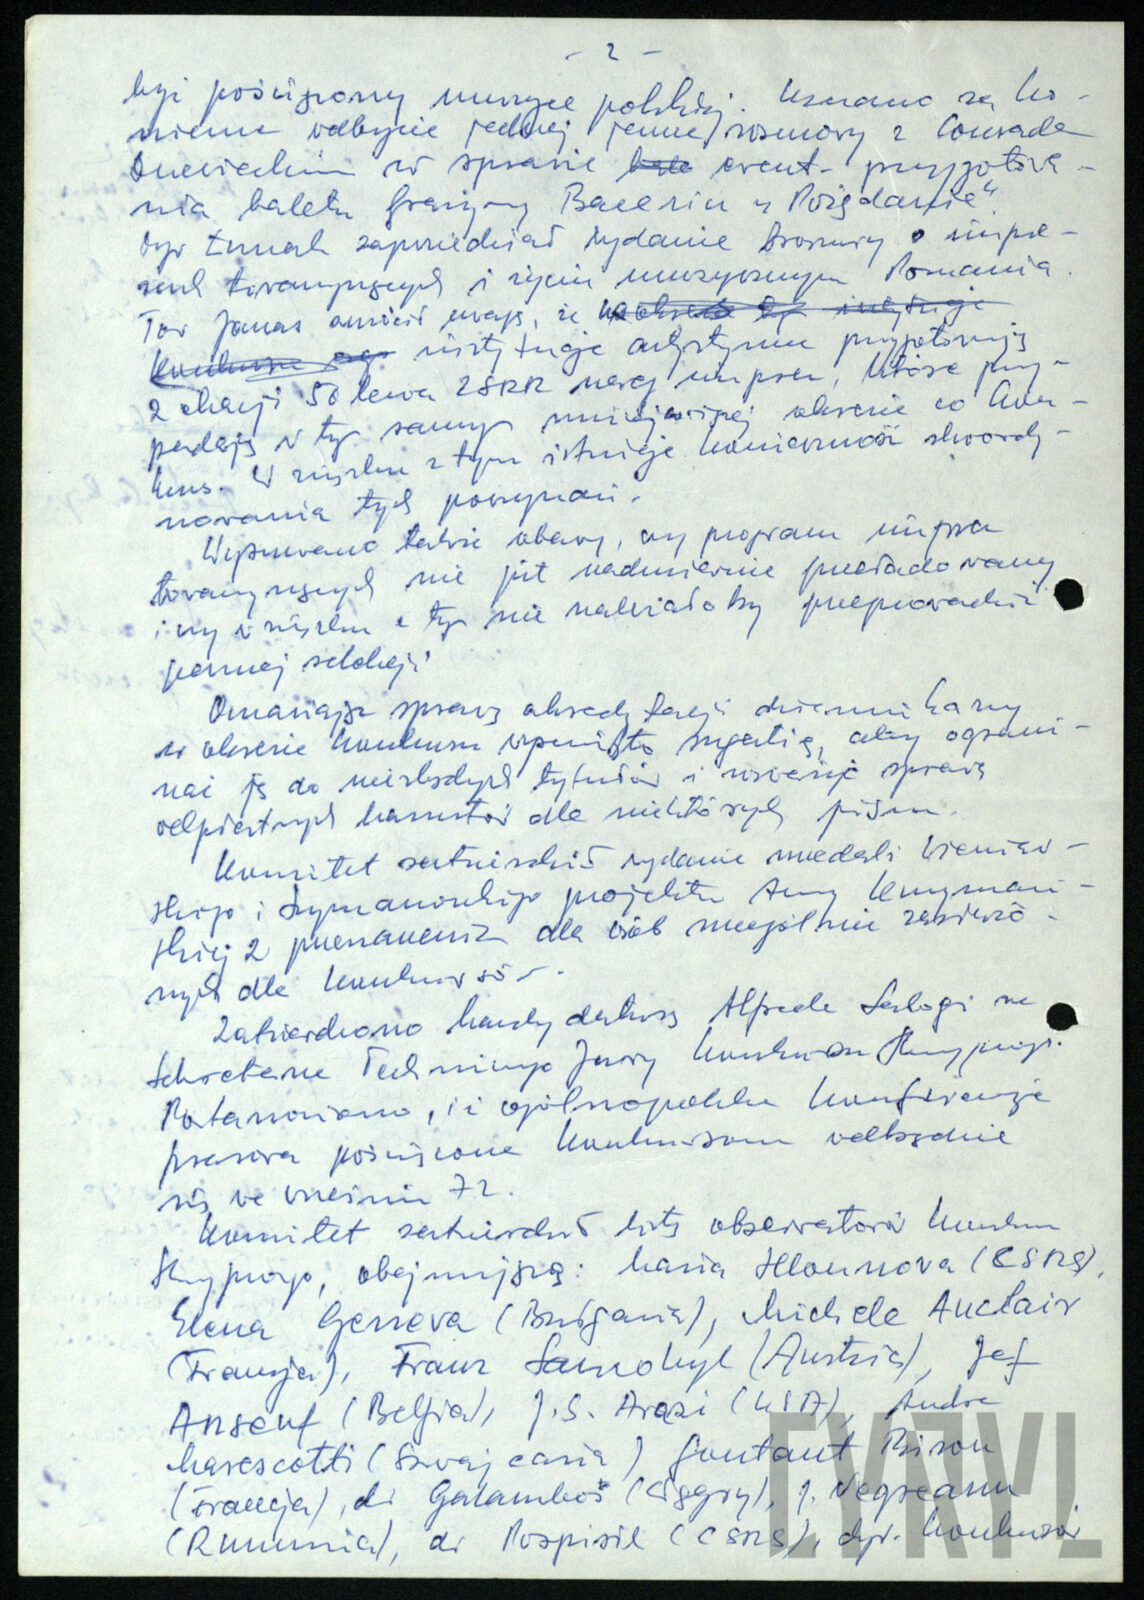 - 2 -
być poświęcony muzyce polskiej. Uznano za ko-
nieczne odbycie jednej jeszcze rozmowy z Conradem
Drzewieckim w sprawie event. przygotowa-
nia baletu Grażyny Bacewicz „Pożądanie".
Dyr zapowiedział wydanie broszury o impre-
zach towarzyszących i życiu muzycznym Poznania.
Tow Janas zwrócił uwagę, że
instytucje artystyczne przygotowują
z okazji 50 lecia ZSRR szereg imprez, które przy-
padają w tym samym mniej więcej okresie co konk-
kurs. W związku z tym istnieje konieczność skoordy-
nowania tych poczynań.
Wysuwano także obawy, czy program imprez
towarzyszących nie jest nadmiernie przeładowany
i czy w związku z tym nie należałoby przeprowadzić
pewnej selekcji
Omawiając sprawę akredytacji dziennikarzy
w okresie konkursu wysunięto sugestię, aby ograni-
czać ją do niezbędnych tytułów i rozważyć sprawę
odpłatnych karnetów dla niektórych pism.
Komitet zatwierdził wydanie medali Wieniaw-
skiego i Szymanowskiego projektu Anny Krzymań-
skiej z przeznaczeniem dla osób szczególnie zasłużo-
nych dla konkursów.
Zatwierdzono kandydaturę Alfreda na
Sekretarza Technicznego Jury Konkursu Skrzypcowego.
Postanowiono, iż ogólnopolska konferencja
prasowa poświęcona konkursom odbędzie
się we wrześniu 72.
Komitet zatwierdził listę obserwatorów konkursu
Skrzypcowego, obejmującą: Maria Hlounova (CSRS),
Elena (Bułgaria), Michele Auclair
(Francja), Franz Samohyl (Austria), Jef
(Belgia), J.S. Arazi (USA), Andre
Marescotti (Szwajcaria)
(Francja), dr Galambos (Węgry), J. Negreanu
(Rumunia), dr Pospisil (CSRS), dyr. konkursów
CYRYL